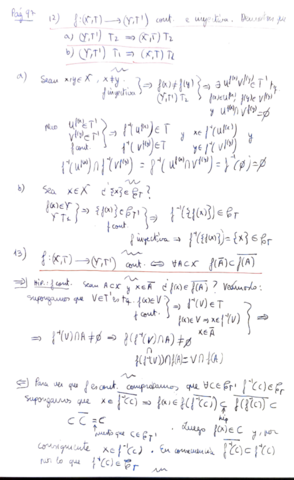 Pág 97 12) f:(X,T) → (Y,T') cont. e inyectiva. Demostrar que
a) (Y,T') T₂ ⟹ (X,T) T₂
b) (Y,T') T₁ ⟹ (X,T) T₁
a) Sean x,y ∈ X, x≠y
f inyectiva } ⟹ f(x) ≠ f(y)
(Y,T') T₂ } ⟹ ∃ U^{f(x)}, V^{f(y)} ∈ T'
U^{f(x)} ∩ V^{f(y)} = ∅
Pero U^{f(x)} ∈ T'
V^{f(y)} ∈ T'
f cont. } ⟹ f⁻¹(U^{f(x)}) ∈ T y x ∈ f⁻¹(U^{f(x)})
f⁻¹(V^{f(y)}) ∈ T y ∈ f⁻¹(V^{f(y)})
f⁻¹(U^{f(x)}) ∩ f⁻¹(V^{f(y)}) = f⁻¹(U^{f(x)} ∩ V^{f(y)}) = f⁻¹(∅) = ∅
b) Sea x ∈ X ¿{x} ∈
f(x) ∈ Y
f cont. } ⟹ f⁻¹({f(x)}) ∈
f inyectiva ⟹ f⁻¹({f(x)}) = {x} ∈
13) f:(X,T) → (Y,T') cont. ⟺ ∀A⊂X f(Ā) ⊂ \overline{f(A)}
⟹) f cont. Sean A⊂X y x∈Ā ¿f(x) ∈ \overline{f(A)}? Veámoslo:
supongamos que V∈T' f(x)∈V
f cont. } ⟹ f⁻¹(V) ∈ T
f(x)∈V ⟹ x∈f⁻¹(V)
x∈Ā } ⟹
⟹ f⁻¹(V) ∩ A ≠ ∅ ⟹ f(f⁻¹(V) ∩ A) ≠ ∅
∩
f(f⁻¹(V)) ∩ f(A) = V ∩ f(A)
⟸) Para ver que f es cont. comprobamos que ∀C∈ f⁻¹(C)∈
Supongamos que x ∈ \overline{f⁻¹(C)} ⟹ f(x) ∈ f(\overline{f⁻¹(C)}) ⊂ \overline{f(f⁻¹(C))} ⊂
⊂ \overline{C} = C
puesto que C ∈ Luego f(x) ∈ C y, por
consiguiente x ∈ f⁻¹(C). En consecuencia \overline{f⁻¹(C)} ⊂ f⁻¹(C)
por lo que f⁻¹(C) ∈